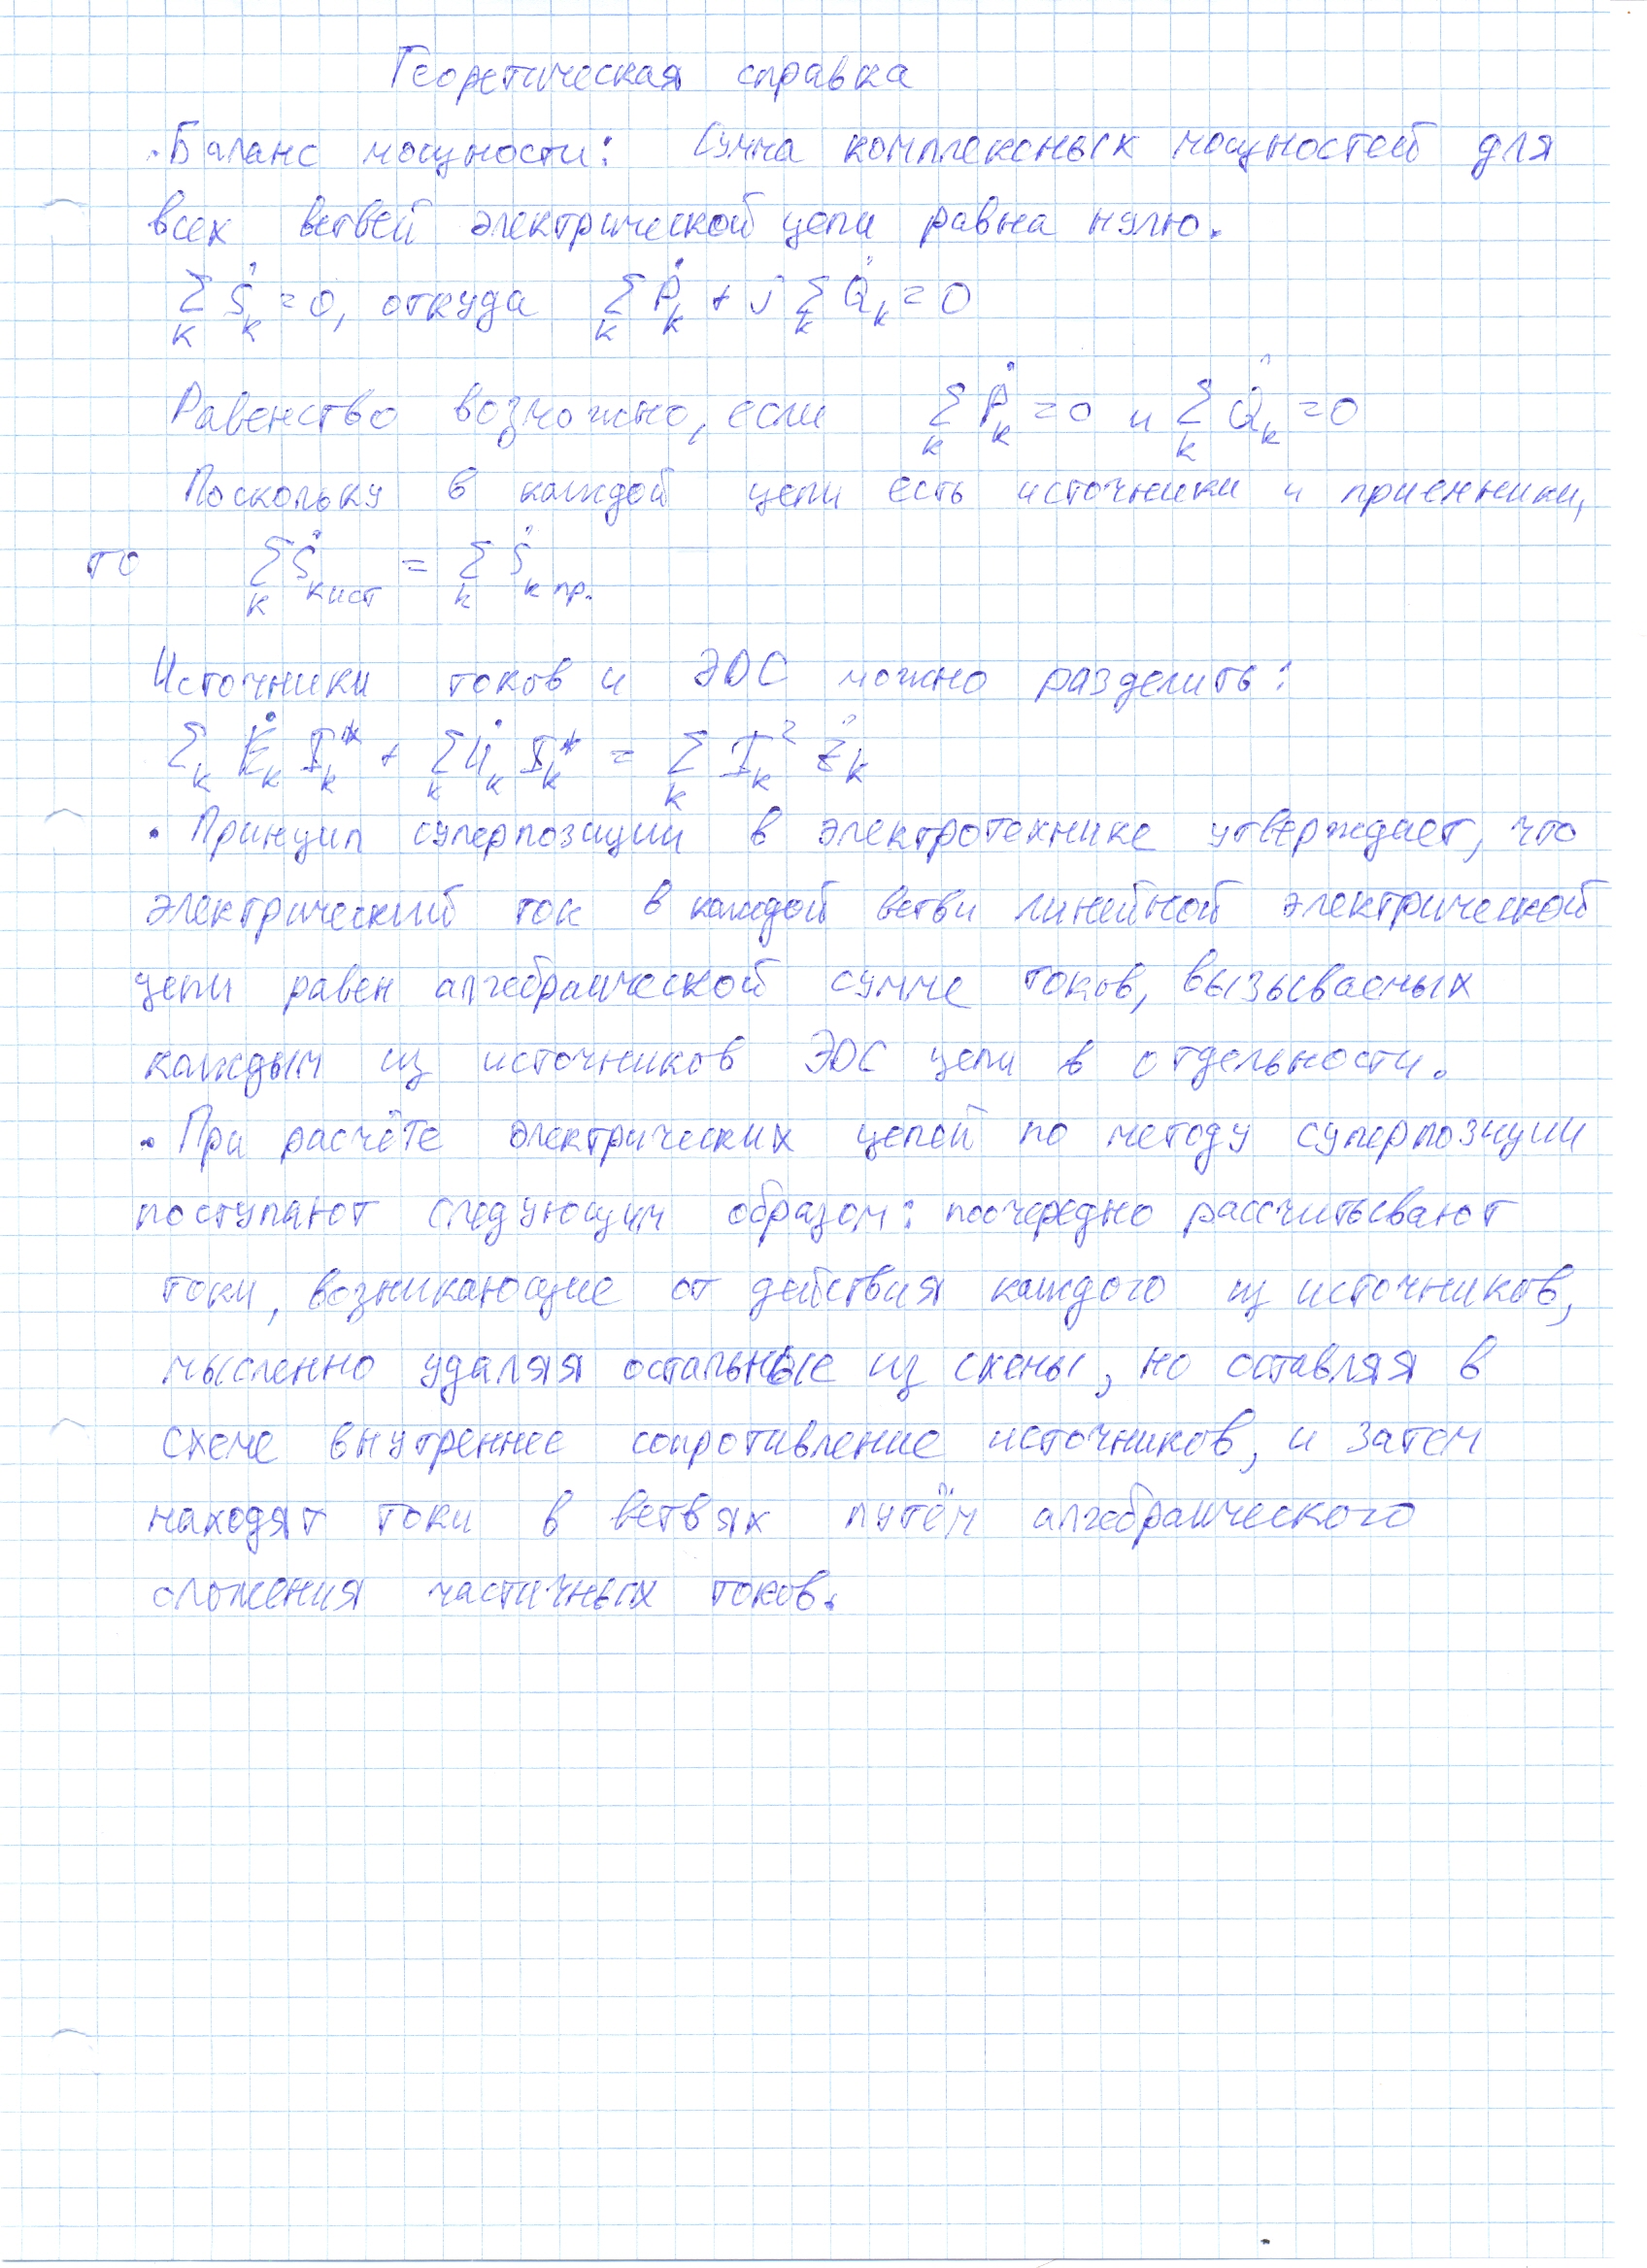 Теоретическая справка
· Баланс мощности: Сумма комплексных мощностей для
всех ветвей электрической цепи равна нулю.
∑_k Ṡ_k = 0, откуда ∑_k Ṗ_k + j ∑_k Q̇_k = 0
Равенство возможно, если ∑_k Ṗ_k = 0 и ∑_k Q̇_k = 0
Поскольку в каждой цепи есть источники и приемники,
то ∑_k Ṡ_k ист = ∑_k Ṡ_k пр.
Источники токов и ЭДС можно разделить:
∑_k Ė_k I_k^* + ∑_k U̇_k I_k^* = ∑_k I_k^2 Ż_k
· Принцип суперпозиции в электротехнике утверждает, что
электрический ток в каждой ветви линейной электрической
цепи равен алгебраической сумме токов, вызываемых
каждым из источников ЭДС цепи в отдельности.
· При расчёте электрических цепей по методу суперпозиции
поступают следующим образом: поочередно рассчитывают
токи, возникающие от действия каждого из источников,
мысленно удаляя остальные из схемы, но оставляя в
схеме внутреннее сопротивление источников, и затем
находят токи в ветвях путём алгебраического
сложения частичных токов.